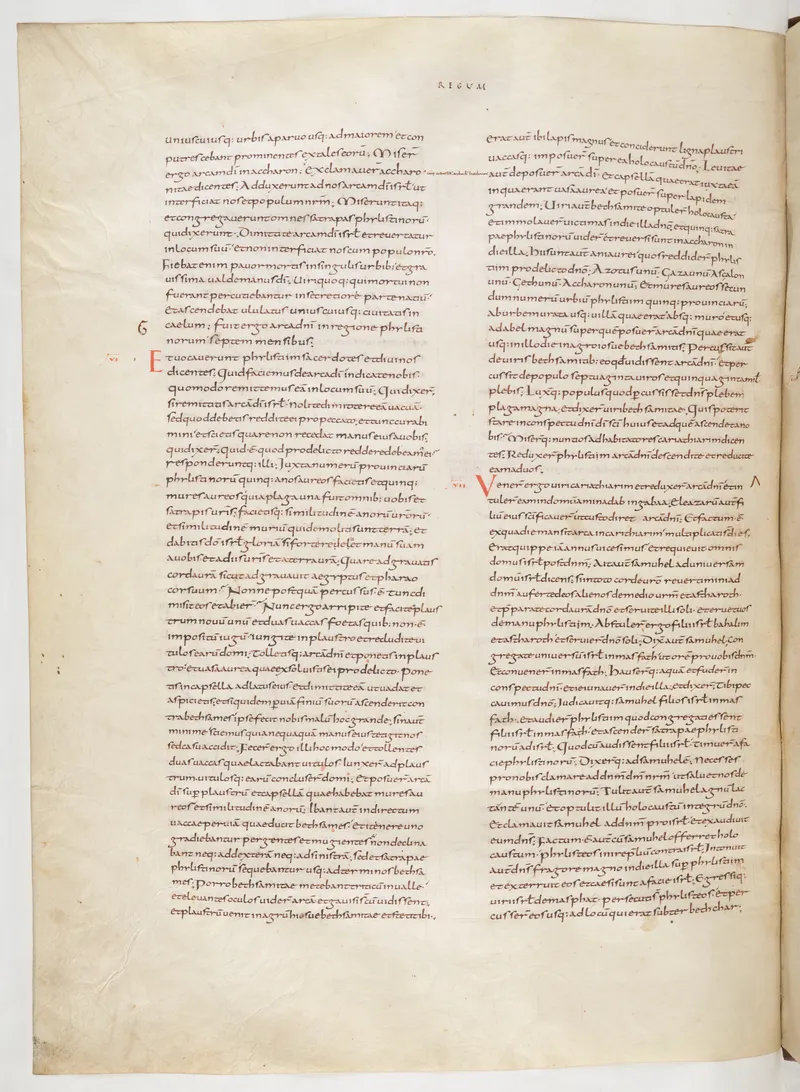 REGUM
uniuscuiusq: urbis aparuo usq: admaiorem & con
putrescebant prominentes extalesoru; Miser
ergo arcam di inaccharon; Exclamauer accharo
nitae dicentes; Adduxerunt adnos arcam di isrt ut
interficiat nos & populum nrm; Miserunt itaq:
et congregauerunt omnes satrapas phylistinoru
qui dixerunt; Dimitate arcam di isrt & reuertatur
in locum suu & non interficiat nos cum populo nro,
Fiebat enim pauor mortis in singulis urbib: & gra
uissima ualde manus di; Uiri quoq: qui mortui non
fuerant percutiebantur in secretiore parte natiu
& ascendebat ululatus uniuscuiusq: ciuitatis in
caelum; Fuit ergo arca dni in regione phylisti
norum septem mensibus;
VI Et uocauerunt phylistiim sacerdotes & diuinos
dicentes; Quid faciemus de arca di indicate nobis
quomodo remittemus ea in locum suu; Qui dixer;
si remittitis arca di isrt nolite dimittere ea uacua
sed quod debetis reddite ei pro peccato & tunc curabi
mini & scietis quare non recedat manus eius a uobis;
qui dixer; Quid e quod pro delicto reddere debeamus ei
responderuntq: illi; Juxta numeru prouinciaru
phylistinoru quinq: anos aureos facietis & quinq:
mures aureos quia plaga una fuit omnib: uobis &
satrapis uris; facietisq: similitudine anoru uroru
& similitudine muriu qui demoliti sunt terra; et
dabitis do isrt gloria si forte releuet manu suam
a uobis & a diis uris & a terra ura; Quare adgrauatis
corda ura sicut adgrauauit aegyptus & pharao
cor suum; Nonne postqua percussus e tunc di
misit eos & abier; Nunc ergo arripite & facite plaus
trum nouu unu & duas uaccas foetas quib: non e
impositu iugu iungite in plaustro & recludite ui
tulos earu domi; Tolletisq: arca dni & ponetis in plaus
tro & uasa aurea quae exsoluistis ei pro delicto pone
tis in capsella ad latus eius & dimittite ea ut uadat et
aspicietis & siquidem p uia finiu suoru ascenderit con
tra bethsames ipse fecit nobis malu hoc grande; sin aut
minime sciemus quia nequaqua manus eius tetigit nos
sed casu accidit; Fecer ergo illi hoc modo & tollentes
duas uaccas quae lactabant uitulos iunxer ad plaus
trum uitulosq: earu concluser domi; Et posuer arca
di sup plaustru & capsella quae habebat mures au
reos & similitudine anoru; Ibant aut in directum
uaccae per uia quae ducit bethsames & itinere uno
gradiebantur pergentes & mugientes & non declina
bant neq: ad dextera neq: ad sinistra; sed & satrapae
phylistinoru sequebantur usq: ad terminos bethsa
mes; Porro bethsamitae metebant triticu in ualle
& eleuantes oculos uider arca & gauisi st cu uidissent;
et plaustru uenit in agru hiosue bethsamitae & stetit ibi,
erat aut ibi lapis magnus & conciderunt ligna plaustri
uaccasq: imposuer super ea holocaustu dno; Leuitae
aut deposuer arca di & capsella quae erat iuxta ea
in qua erant uasa aurea & posuer super lapidem
grandem; Uiri aut bethsamitae optuler holocausta
et immolauer uictimas in die illa dno & quinq: satra
pae phylistinoru uider & reuersi sunt in accharon in
die illa; Hi sunt aut ani aurei quos reddider phylis
tiim pro delicto dno; Azotus unu; Gaza unu; Ascalon
unu; Geth unu; Accharon unu; Et mures aureos secun
dum numeru urbiu phylistiim quinq: prouinciaru;
Ab urbe murata usq: ad uilla quae erat absq: muro & usq:
ad abel magnu super que posuer arca dni quae erat
usq: in illo die in agro iosue bethsamitis; Percussit aut
de uiris bethsamitib: eo qd uidissent arca dni & per
cussit de populo septuaginta uiros & quinquaginta milt
plebis; Luxitq: populus quod percussisset dns plebem
plaga magna, & dixer uiri bethsamitae; Quis poterit
stare in conspectu dni di sci huius & ad que ascendet a no
bis; Miserq: nuntios ad habitatores cariathiarim dicen
tes; Reduxer phylistiim arca dni descendite & reducite
eam ad uos;
VII Vener ergo uiri cariathiarim & reduxer arca dni & in
tuler eam in domu aminadab in gabaa; Eleazaru aut fi
liu eius scificauer ut custodiret arca dni; Et factum e
ex qua die mansit arca in cariathiarim multiplicati s dies;
Erat quippe ia annus uicesimus & requieuit omnis
domus isrt post dnm; Ait aut samuhel ad uniuersam
domu isrt dicens; Si in toto corde uro reuertimini ad
dnm auferte deos alienos de medio urm & astharoth;
& pparate corda ura dno & seruite illi soli & eruet uos
de manu phylistiim; Abstuler ergo filii isrt bahalim
& astharoth & seruier dno soli; Dix aut samuhel; Con
gregate uniuersu isrt in masfath ut ore pro uobis dnm
Et conuener in masfath; Hauserq: aqua & effuder in
conspectu dni & ieiunauer in die illa & dixer; Tibi pec
cauimus dne; Judicauitq: samuhel filios isrt in mas
fath; et audier phylistiim quod congregati essent
filii isrt in masfath & ascender satrapae phylisti
noru ad isrt; Quod cu audissent filii isrt timuer a fa
cie phylistinoru; Dixerq: ad samuhele; Ne cesses
pro nobis clamare ad dnm dm nrm ut saluet nos de
manu phylistinoru; Tulit aut samuhel agnu lac
tante unu & optulit illu holocaustu integru dno,
Et clamauit samuhel ad dnm pro isrt & exaudiuit
eum dns; Factum e aut cu samuhel offerret holo
caustum phylisteos inire pliu contra isrt; Intonuit
aut dns fragore magno in die illa sup phylistiim
et exterruit eos & caesi sunt a facie isrt; Egressiq:
uiri isrt de masphat persecuti s phylisteos & per
cusser eos usq: ad locu qui erat subter bethchar;